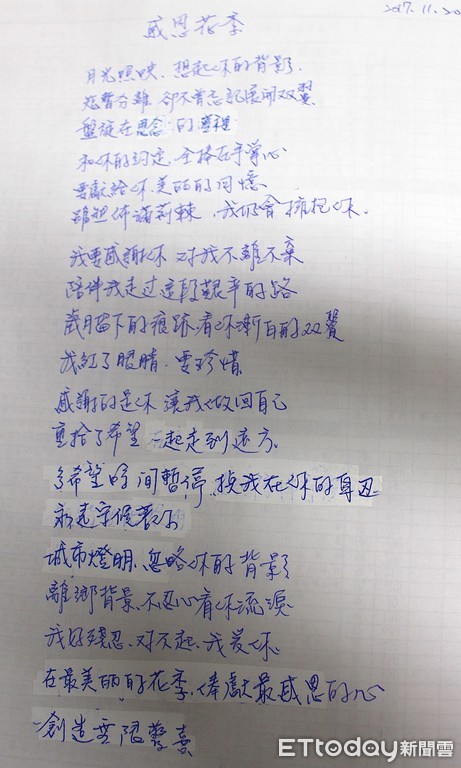 2017.11.20
感恩花季
月光照映，想起你的背影
短暫分離 卻不曾忘記展開双翼
盤旋在思念的
和你的約定，全捧在手掌心
要獻給你 美丽的回憶
佈滿荊棘，我仍會擁抱你.
我要感謝你 对我不離不棄
陪伴我走过這段艱辛的路
歲月留下的痕跡 看你漸白的双鬢
我紅了眼睛，要珍惜
感謝的是你 讓我做回自己
重拾了希望 一起走到遠方
多希望時间暫停，換我在你的身边
永远守候著你
城市燈明，忽略你的背影
離鄉背景，不忍心看你流淚
我好殘忍，对不起，我爱你.
在最美丽的花季，俸獻最感恩的心
創造無限驚喜
ETtoday新聞雲